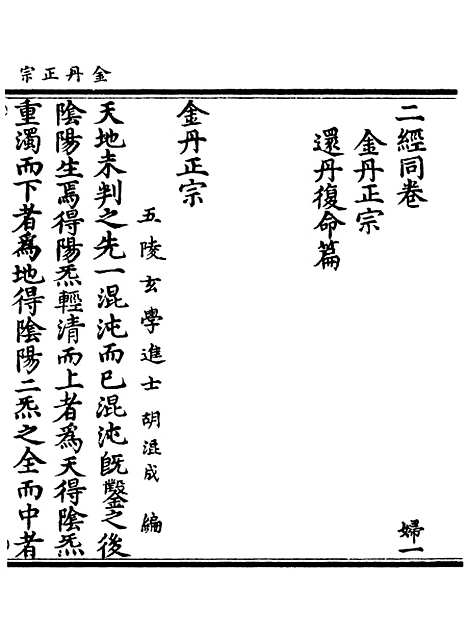 金丹正宗
二經同卷　婦一
金丹正宗
還丹復命篇
金丹正宗
五陵玄學進士胡混成編
天地未判之先一混沌而已混沌旣鑿之後
陰陽生焉得陽炁輕清而上者爲天得陰炁
重濁而下者爲地得陰陽二炁之全而中者